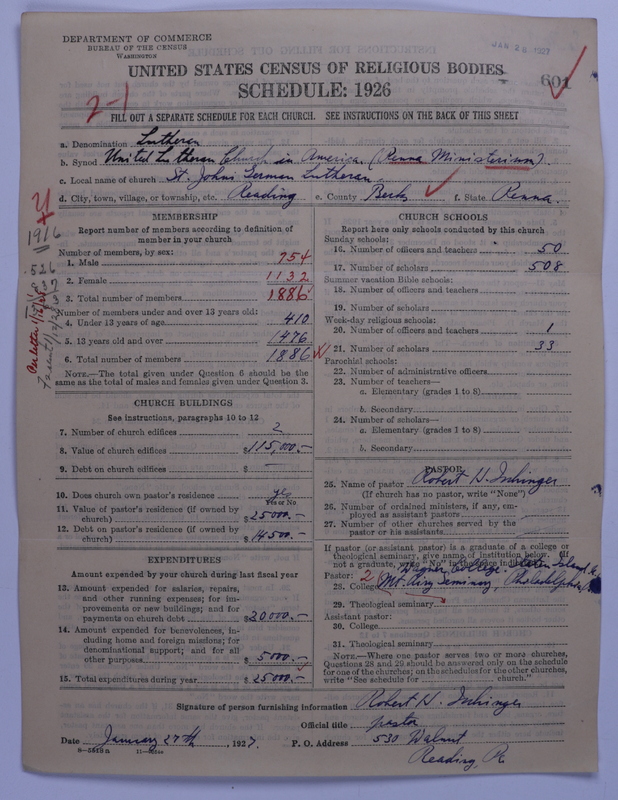 DEPARTMENT OF COMMERCE
BUREAU OF THE CENSUS
WASHINGTON
JAN 28 1927
UNITED STATES CENSUS OF RELIGIOUS BODIES
SCHEDULE: 1926
601
2-1
FILL OUT A SEPARATE SCHEDULE FOR EACH CHURCH. SEE INSTRUCTIONS ON THE BACK OF THIS SHEET
a. Denomination Lutheran
b. Synod United Lutheran Church in America (Penna Ministerium).
c. Local name of church St. Johns German Lutheran
d. City, town, village, or township, etc. Reading e. County Berks f. State Penna.
1916
526
MEMBERSHIP
Report number of members according to definition of
member in your church
Number of members, by sex:
1. Male 754
2. Female 1132
3. Total number of members 1886
Number of members under and over 13 years old:
4. Under 13 years of age 410
5. 13 years old and over 1476
6. Total number of members 1886
NOTE.—The total given under Question 6 should be the
same as the total of males and females given under Question 3.
CHURCH BUILDINGS
See instructions, paragraphs 10 to 12
7. Number of church edifices 2
8. Value of church edifices $115,000.-
9. Debt on church edifices $ -
10. Does church own pastor's residence yes
Yes or No
11. Value of pastor's residence (if owned by
church) $25000.-
12. Debt on pastor's residence (if owned by
church) $14500.-
EXPENDITURES
Amount expended by your church during last fiscal year
13. Amount expended for salaries, repairs,
and other running expenses; for im-
provements or new buildings; and for
payments on church debt $20000.-
14. Amount expended for benevolences, in-
cluding home and foreign missions; for
denominational support; and for all
other purposes $5000.-
15. Total expenditures during year $25000.-
CHURCH SCHOOLS
Report here only schools conducted by this church
Sunday schools:
16. Number of officers and teachers 50
17. Number of scholars 508
Summer vacation Bible schools:
18. Number of officers and teachers
19. Number of scholars
Week-day religious schools:
20. Number of officers and teachers 1
21. Number of scholars 33
Parochial schools:
22. Number of administrative officers
23. Number of teachers—
a. Elementary (grades 1 to 8)
b. Secondary
24. Number of scholars—
a. Elementary (grades 1 to 8)
b. Secondary
PASTOR
25. Name of pastor Robert H. Ischinger
(If church has no pastor, write "None")
26. Number of ordained ministers, if any, em-
ployed as assistant pastors
27. Number of other churches served by the
pastor or his assistants
If pastor (or assistant pastor) is a graduate of a college or
theological seminary, give name of institution below. (If
not a graduate, write "No" in the space indicated)
Pastor: 2 Wagner College. Staten Island
28. College Mt. Airy Seminary, Philadelphia
29. Theological seminary
Assistant pastor:
30. College
31. Theological seminary
NOTE.—Where one pastor serves two or more churches,
Questions 28 and 29 should be answered only on the schedule
for one of the churches; on the schedules for the other churches,
write "See schedule for church."
Signature of person furnishing information Robert H. Ischinger
Official title pastor
Date January 27th, 1927. P. O. Address 530 Walnut
8-5518a
Reading, Pa.